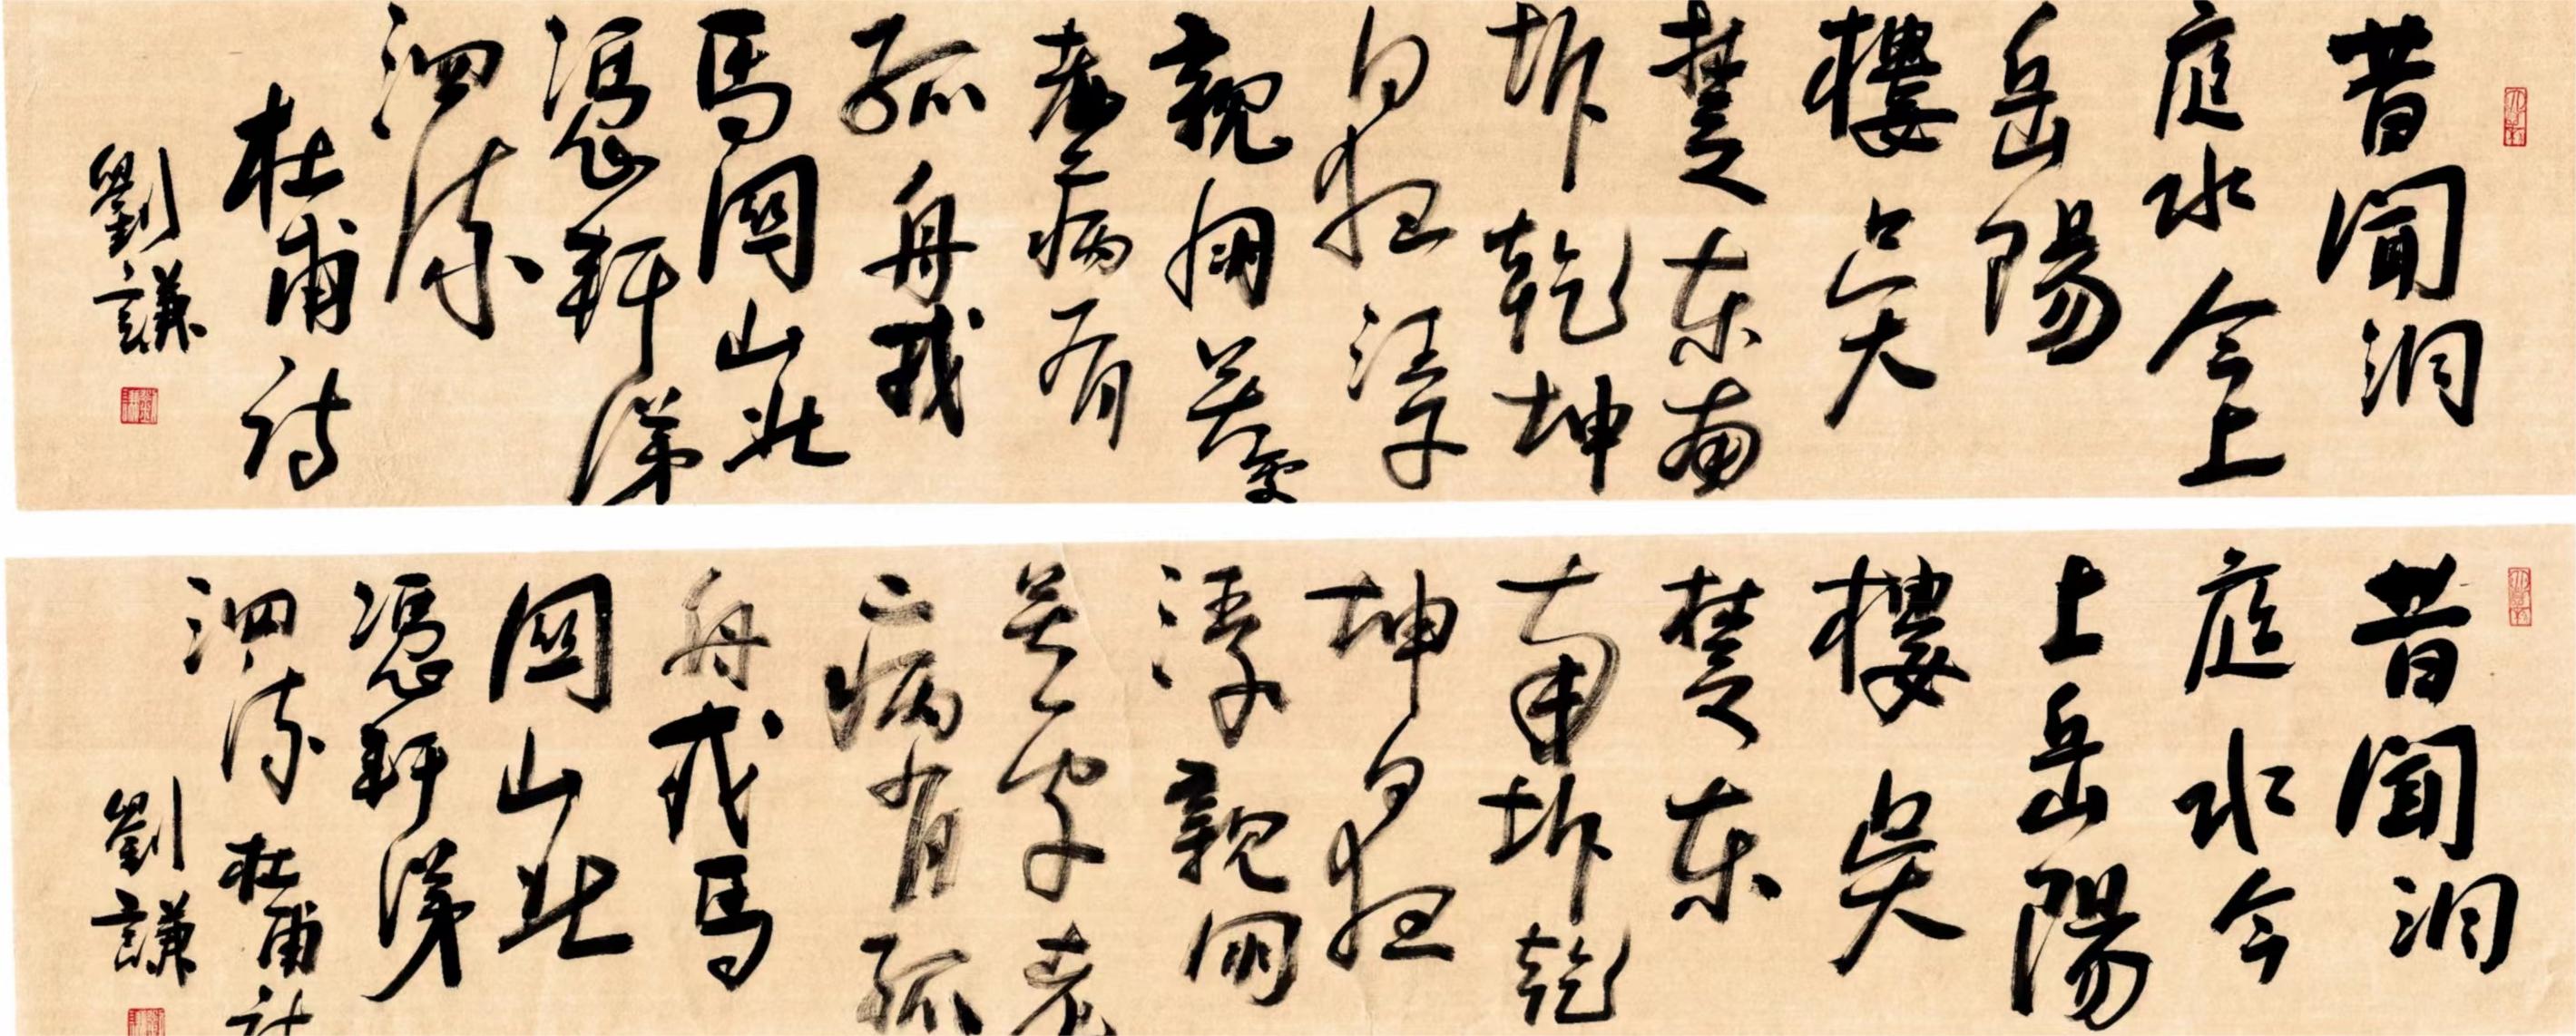 昔聞洞
庭水今上
岳陽
樓吳
楚東南
坼乾坤
日夜浮
親朋無一字
老病有
孤舟戎
馬關山北
憑軒涕
泗流
杜甫詩
劉謙
昔聞洞
庭水今
上岳陽
樓吳
楚東
南坼乾
坤日夜
浮親朋
無一字老
病有孤
舟戎馬
關山北
憑軒涕
泗流杜甫詩
劉謙